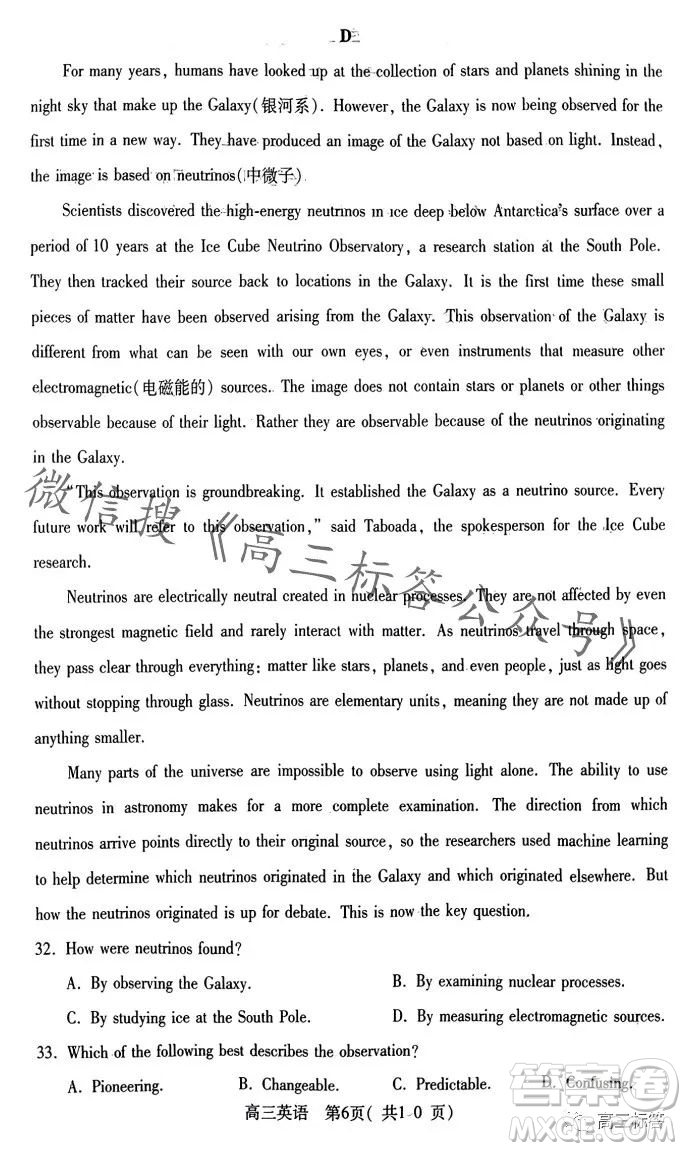 D
For many years, humans have looked up at the collection of stars and planets shining in the
night sky that make up the Galaxy(银河系). However, the Galaxy is now being observed for the
first time in a new way. They have produced an image of the Galaxy not based on light. Instead,
the image is based on neutrinos(中微子)
Scientists discovered the high-energy neutrinos in ice deep below Antarctica's surface over a
period of 10 years at the Ice Cube Neutrino Observatory, a research station at the South Pole.
They then tracked their source back to locations in the Galaxy. It is the first time these small
pieces of matter have been observed arising from the Galaxy. This observation of the Galaxy is
different from what can be seen with our own eyes, or even instruments that measure other
electromagnetic(电磁能的) sources. The image does not contain stars or planets or other things
observable because of their light. Rather they are observable because of the neutrinos originating
in the Galaxy.
"This observation is groundbreaking. It established the Galaxy as a neutrino source. Every
future work will refer to this observation," said Taboada, the spokesperson for the Ice Cube
research.
Neutrinos are electrically neutral created in nuclear processes. They are not affected by even
the strongest magnetic field and rarely interact with matter. As neutrinos travel through space,
they pass clear through everything: matter like stars, planets, and even people, just as light goes
without stopping through glass. Neutrinos are elementary units, meaning they are not made up of
anything smaller.
Many parts of the universe are impossible to observe using light alone. The ability to use
neutrinos in astronomy makes for a more complete examination. The direction from which
neutrinos arrive points directly to their original source, so the researchers used machine learning
to help determine which neutrinos originated in the Galaxy and which originated elsewhere. But
how the neutrinos originated is up for debate. This is now the key question.
32. How were neutrinos found?
A. By observing the Galaxy. B. By examining nuclear processes.
C. By studying ice at the South Pole. D. By measuring electromagnetic sources.
33. Which of the following best describes the observation?
A. Pioneering. B. Changeable. C. Predictable. D. Confusing.
高三英语 第6页( 共1 0 页)
微信搜《高三标答公众号》
答案圈
MXQE.COM
高三标答